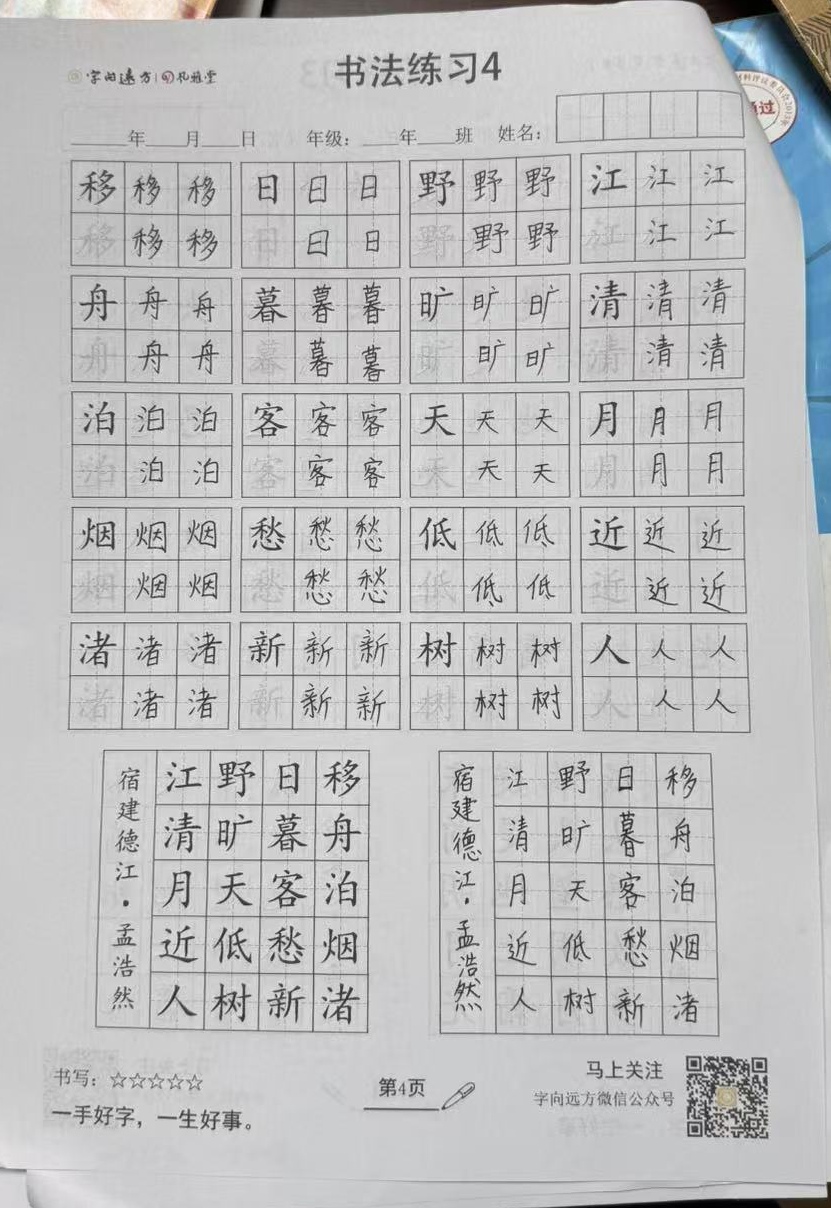 字向远方 孔雅堂
书法练习4
通过
年 月 日 年级： 年 班 姓名：
移 移 移 日 日 日 野 野 野 江 江 江
移 移 移 日 日 日 野 野 野 江 江 江
舟 舟 舟 暮 暮 暮 旷 旷 旷 清 清 清
舟 舟 舟 暮 暮 暮 旷 旷 旷 清 清 清
泊 泊 泊 客 客 客 天 天 天 月 月 月
泊 泊 泊 客 客 客 天 天 天 月 月 月
烟 烟 烟 愁 愁 愁 低 低 低 近 近 近
烟 烟 烟 愁 愁 愁 低 低 低 近 近 近
渚 渚 渚 新 新 新 树 树 树 人 人 人
渚 渚 渚 新 新 新 树 树 树 人 人 人
移舟泊烟渚
日暮客愁新
野旷天低树
江清月近人
宿建德江·孟浩然
移舟泊烟渚
日暮客愁新
野旷天低树
江清月近人
宿建德江·孟浩然
书写：☆☆☆☆☆
一手好字，一生好事。
第4页
马上关注
字向远方微信公众号